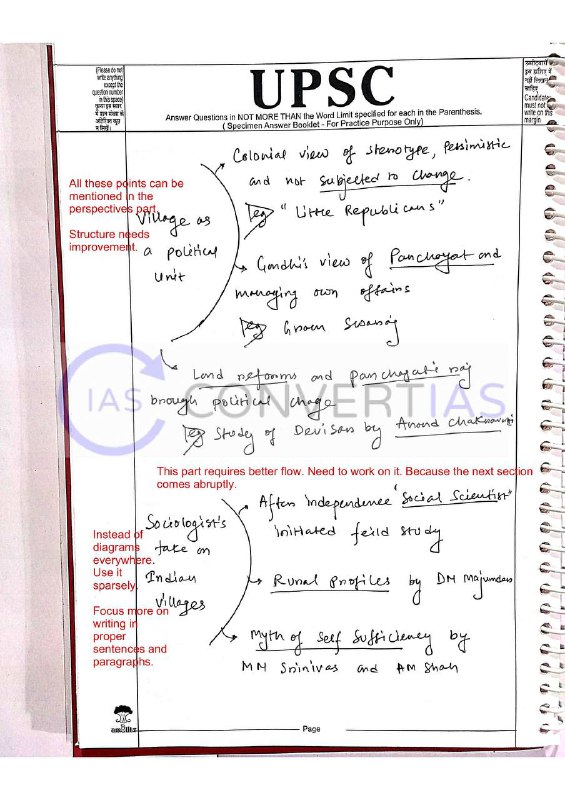 (Please do not
write anything
except the
question number
in this space)
UPSC
Answer Questions in NOT MORE THAN the Word Limit specified for each in the Parenthesis.
( Specimen Answer Booklet - For Practice Purpose Only)
उम्मीदवारों को
इस हाशिये में
नहीं लिखना
चाहिए
Candidates
must not
write on this
margin
Colonial view of stereotype, Pessimistic
and not subjected to change.
eg "Little Republicans"
All these points can be
mentioned in the
perspectives part.
Structure needs
improvement.
Village as
a political
Unit
Gandhi's view of Panchayat and
managing own affairs
eg Gram Swaraj
Land reforms and Panchayati raj
brough political change
eg Study of Devisar by Anand Chakravarti
IAS CONVERTIAS
This part requires better flow. Need to work on it. Because the next section
comes abruptly.
After independence "Social Scientist"
initiated feild study
Sociologist's
take on
Indian
Villages
Instead of
diagrams
everywhere.
Use it
sparsely.
Focus more on
writing in
proper
sentences and
paragraphs.
Rural Profiles by DM Majumdar
Myth of Self Sufficiency by
MN Srinivas and AM Shah
Page